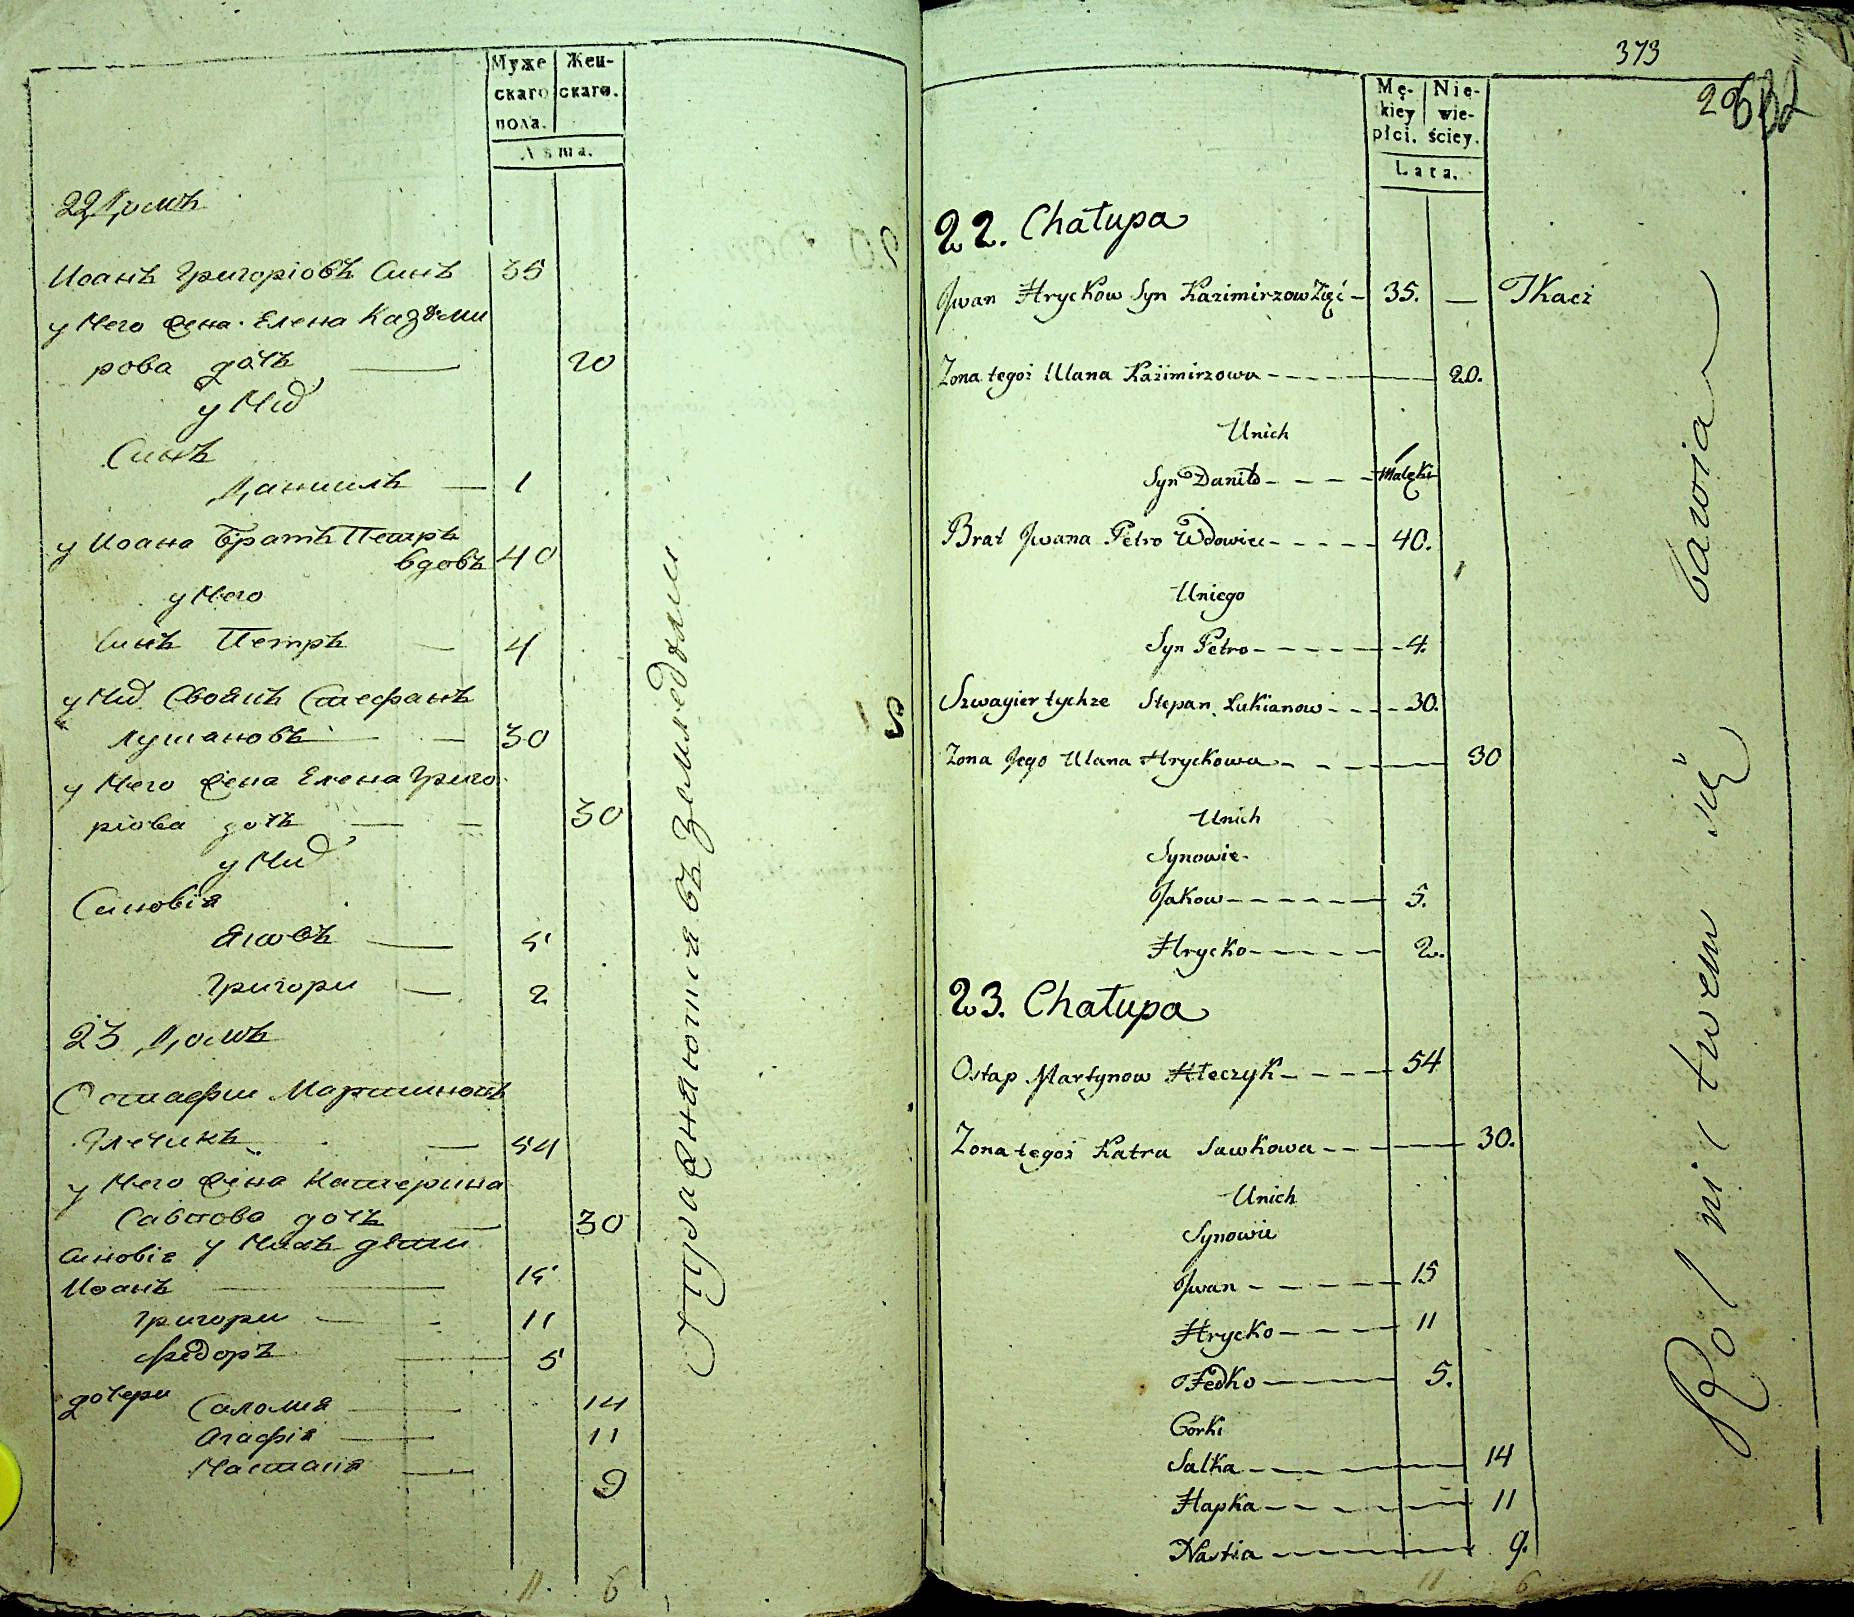 Муже Жен-
скаго скаго.
пола.
Лѣта.
22 Домъ
Иоанъ Григоріовъ Синъ 35
у Него Жена Елена Казѣми
рова дочъ — 20
у Них
Синъ
Даниилъ — 1
у Иоана Братъ Петръ
вдовъ 40
у Него
Синъ Петръ — 4
у Них Своякъ Стефанъ
Лукиановъ — 30
у Него Жена Елена Григо
ріова дочъ — 30
у Них
Синовія
Яковъ — 5
Григори — 2
23 Домъ
Остафии Мартиновъ
Глечикъ — 54
у Него Жена Катерина
Савкова дочъ — 30
Синовія у Нихъ дѣти
Иоанъ — 15
Григори — 11
Федоръ — 5
дочери Саломия — 14
Агафія — 11
Настасия — 9
11. 6
Упражняются въ Земледелии
373
Mę- Nie-
kiey wie-
płci. ściey.
Lata.
22. Chałupa
Jwan Hryckow Syn Kazimirzow Zięć — 35. — Tkacz
Zona tegoż Ulana Kazimirzowa — 20.
Unich
Syn Daniło — Maleki
Brat Jwana Petro Wdowiec — 40.
Uniego
Syn Petro — 4.
Szwagier tychże Stepan Łukianow — 30.
Zona Jego Ulana Hryckowa — 30
Unich
Synowie
Jakow — 5.
Hrycko — 2.
23. Chałupa
Ostap Martynow Hleczyk — 54
Zona tegoż Katra Sawkowa — 30.
Unich
Synowie
Jwan — 15
Hrycko — 11
Fedko — 5.
Corki
Salka — 14
Hapka — 11
Nastia — 9.
11 6
Rolnictwem się bawią